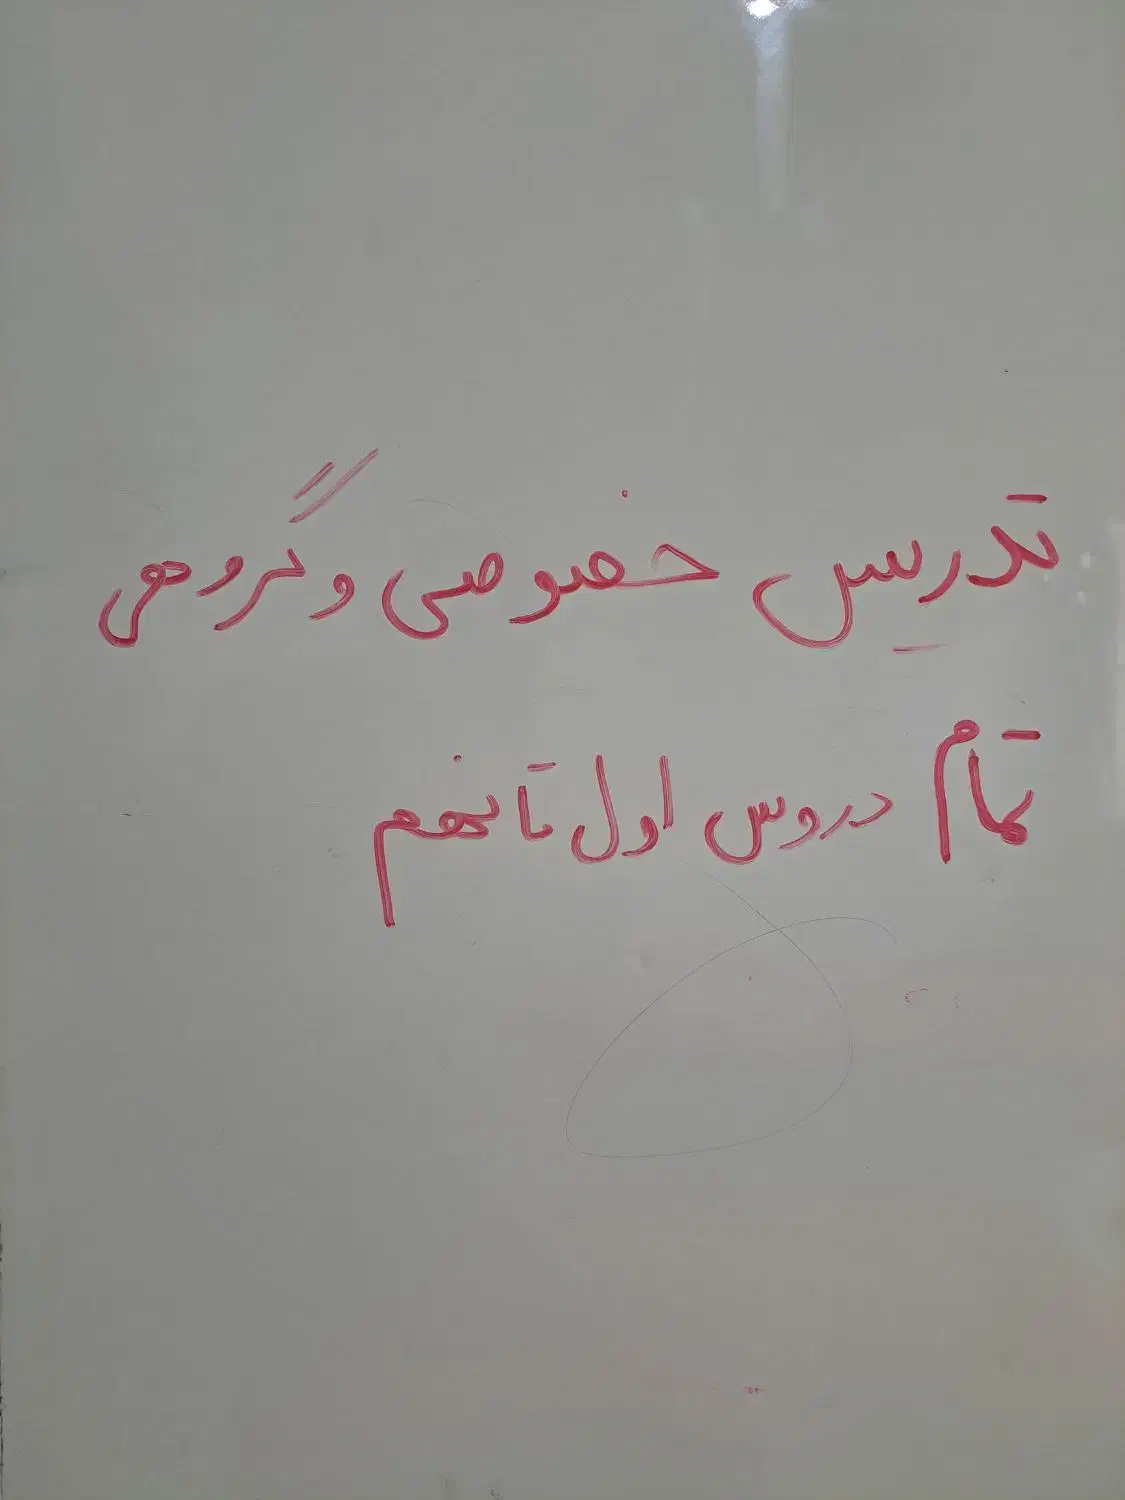 تدریس خصوصی و گروهی
تمام دروس اول تا نهم